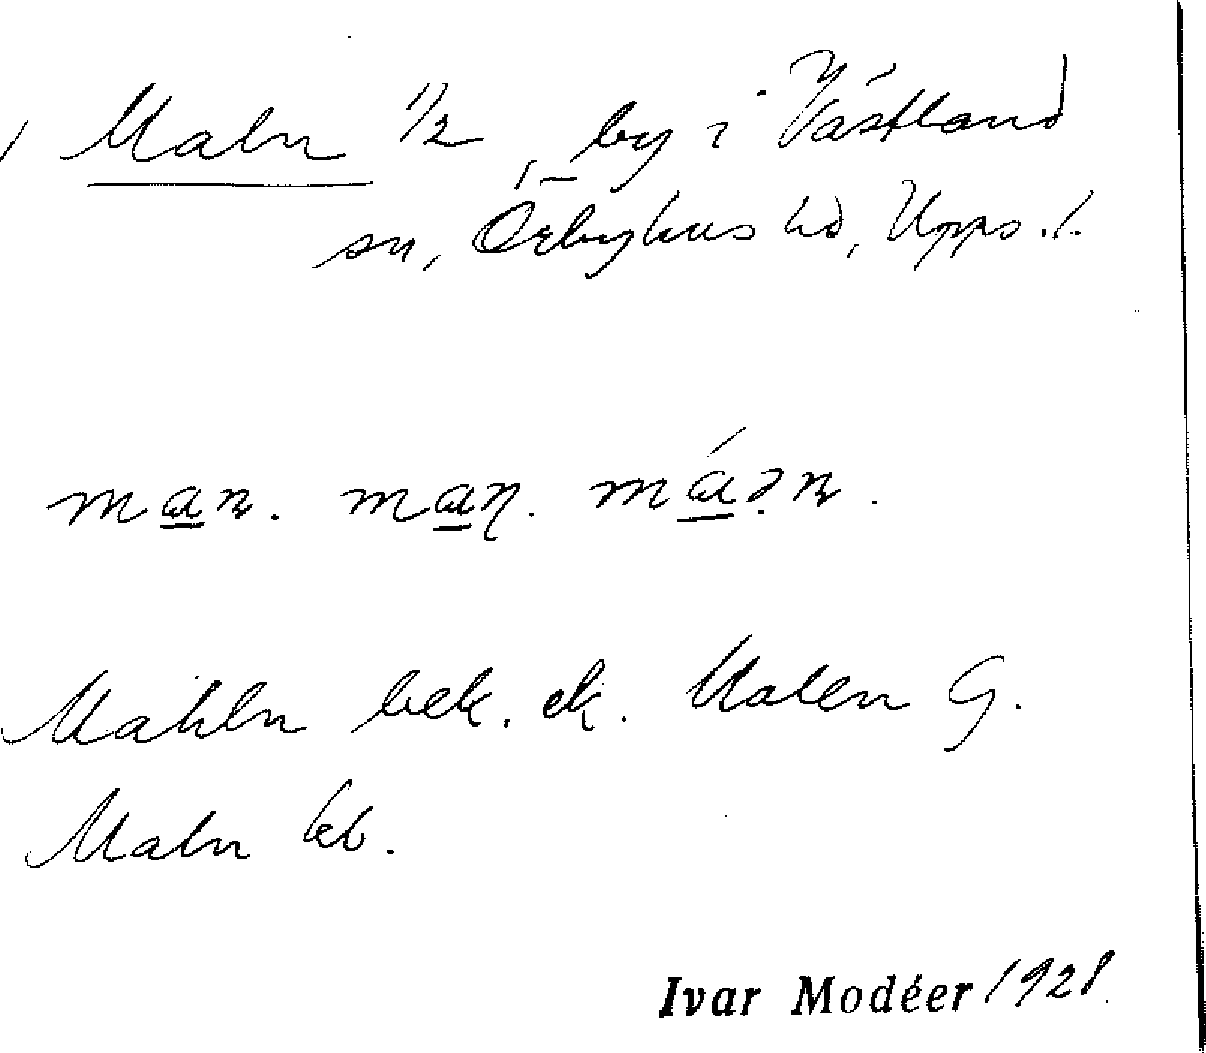 Maln 1/2, by i Västland
sn, Örbyhus hd, Upps. l.
man. maɳ. má̱ən.
Mahln bek. ek. Malen G.
Maln kb.
Ivar Modéer 1928.